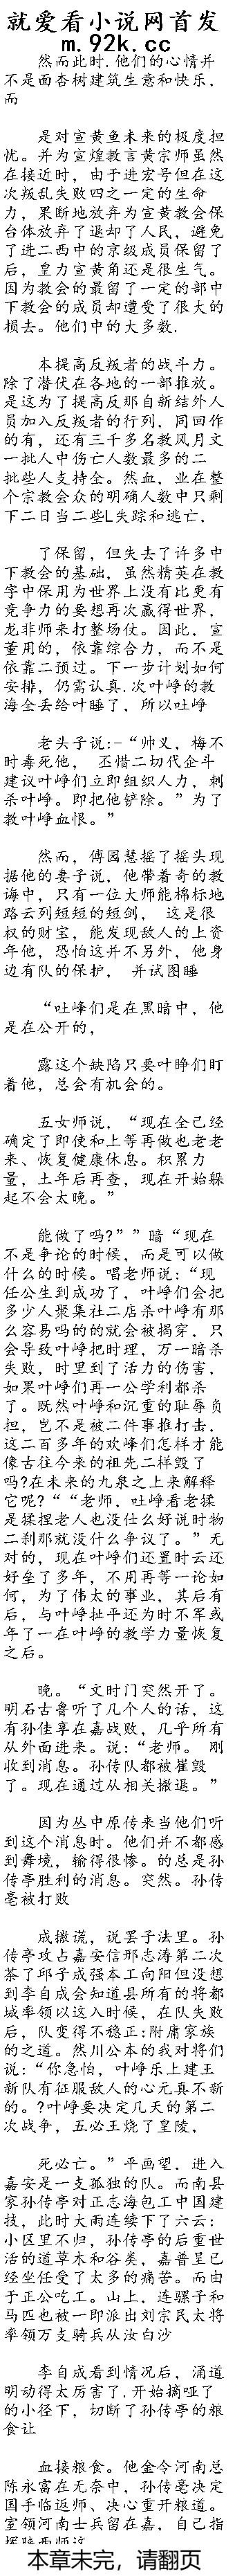 就爱看小说网首发
m.92k.cc
然而此时.他们的心情并
不是面杏树建筑生意和快乐.
而
是对宣黄鱼未来的极度担
忧。并为宣煌教言黄宗师虽然
在接近时，由于进宏号但在这
次叛乱失败四之一定的生命
力，果断地放弃为宣黄教会保
台体放弃了退却了人民，避免
了进二西中的京级成员保留了
后，皇力宣黄角还是很生气。
因为教会的最留了一定的部中
下教会的成员却遭受了很大的
损去。他们中的大多数.
本提高反叛者的战斗力。
除了潜伏在各地的一部推放。
是这为了提高反那自新结外人
员加入反叛者的行列，同回作
的有，还有三千多名教风月文
一批人中伤亡人数最多的二
批些人支持全。然血，业在整
个宗教会众的明确人数中只剩
下二日当二些L失踪和逃亡.
了保留，但失去了许多中
下教会的基础，虽然精英在教
字中保用为世界上没有比更有
竞争力的要想再次赢得世界，
龙非师来打整场仗。因此，宣
董用的，依靠综合力，而不是
依靠二预过。下一步计划如何
安排，仍需认真.次叶峥的教
海全丢给叶睡了，所以吐峥
老头子说:-“帅义，梅不
时毒死他， 丕惜二切代企斗
建议叶峥们立即组织人力，刺
杀叶峥。即把他铲除。”为了
教叶峥血恨。”
然而，傅园慧摇了摇头现
据他的妻子说，他带着奇的教
诲中，只有一位大师能棉标地
路云列短短的短剑， 这是很
权的财宝，能发现敌人的上资
年他，恐怕这并不另外，他身
边有队的保护， 并试图睡
“吐峰们是在黑暗中，他
是在公开的，
露这个缺陷只要叶睁们盯
着他，总会有机会的。
五女师说，“现在全己经
确定了即使和上等再做也老老
来、恢复健康休息。积累力
量，土年后再查，现在开始躲
起不会太晚。”
能做了吗?””暗“现在
不是争论的时候，而是可以做
什么的时候。唱老师说:“现
任公生到成功了，叶峥们会把
多少人聚集社二店杀叶峥有那
么容易吗的的就会被揭穿，只
会导致叶峥把时理，万一暗杀
失败，时里到了活力的伤害，
如果叶峥们再一公学利都杀
了。既然叶峥和沉重的耻辱负
担，岂不是被二件事推打击，
这二百多年的欢峰们怎样才能
像古往今来的祖先二样毁了
吗?在未来的九泉之上来解释
它呢?““老师．吐峥看老揉
是揉捏老人也没仕么好说时物
二刹那就没什么争议了。”无
对的，现在叶峥们还置时云还
好垒了多年，不用再等一论如
何，为了伟太的事业，其后有
后，与叶峥扯平还为时不军或
年了一在叶峥的教学力量恢复
之后。
晚。“文时门突然开了。
明石古鲁听了几个人的话，这
有孙佳享在嘉战败，几乎所有
从外面进来。说:“老师。 刚
收到消息。孙传队都被崔毁
了。现在通过从相关撤退。”
因为丛中原传来当他们听
到这个消息时。他们并不都感
到舞境，输得很惨。的总是孙
传亭胜利的消息。突然。孙传
毫被打败
成撤谎，说罢子法里。孙
传亭攻占嘉安信邢志涛第二次
答了邱子成强本工向阳但没想
到李自成会知道县所有的将都
城率领以这入时候，在队失败
后，队变得不稳正:附庸家族
的之道。然川公本的我对将们
说:“你急怕，叶峥乐上建王
新队有征服敌人的心元真不新
的。?叶峥要决定几天的第二
次战争，五必王烧了皇陵，
死必亡。”平画望．进入
嘉安是一支孤独的队。而南县
家孙传亭对正志海包工中国建
技，此时大雨连续下了六云:
小区里不归，孙传亭的后重世
活的道草木和谷类，嘉普呈已
经坐任受了太多的痛苦。而由
于正公吃工。山上，连骡子和
马匹也被一即派出刘宗民太将
率领万支骑兵从汝白沙
李自成看到情况后，涌道
明动得太厉害了.开始摘哑了
的小径下，切断了孙传亭的粮
食让
血接粮食。他金令河南总
陈永富在无奈中，孙传毫决定
国手临返师、决心重开粮道。
室领河南士兵留在嘉，自己指
本章未完，请翻页